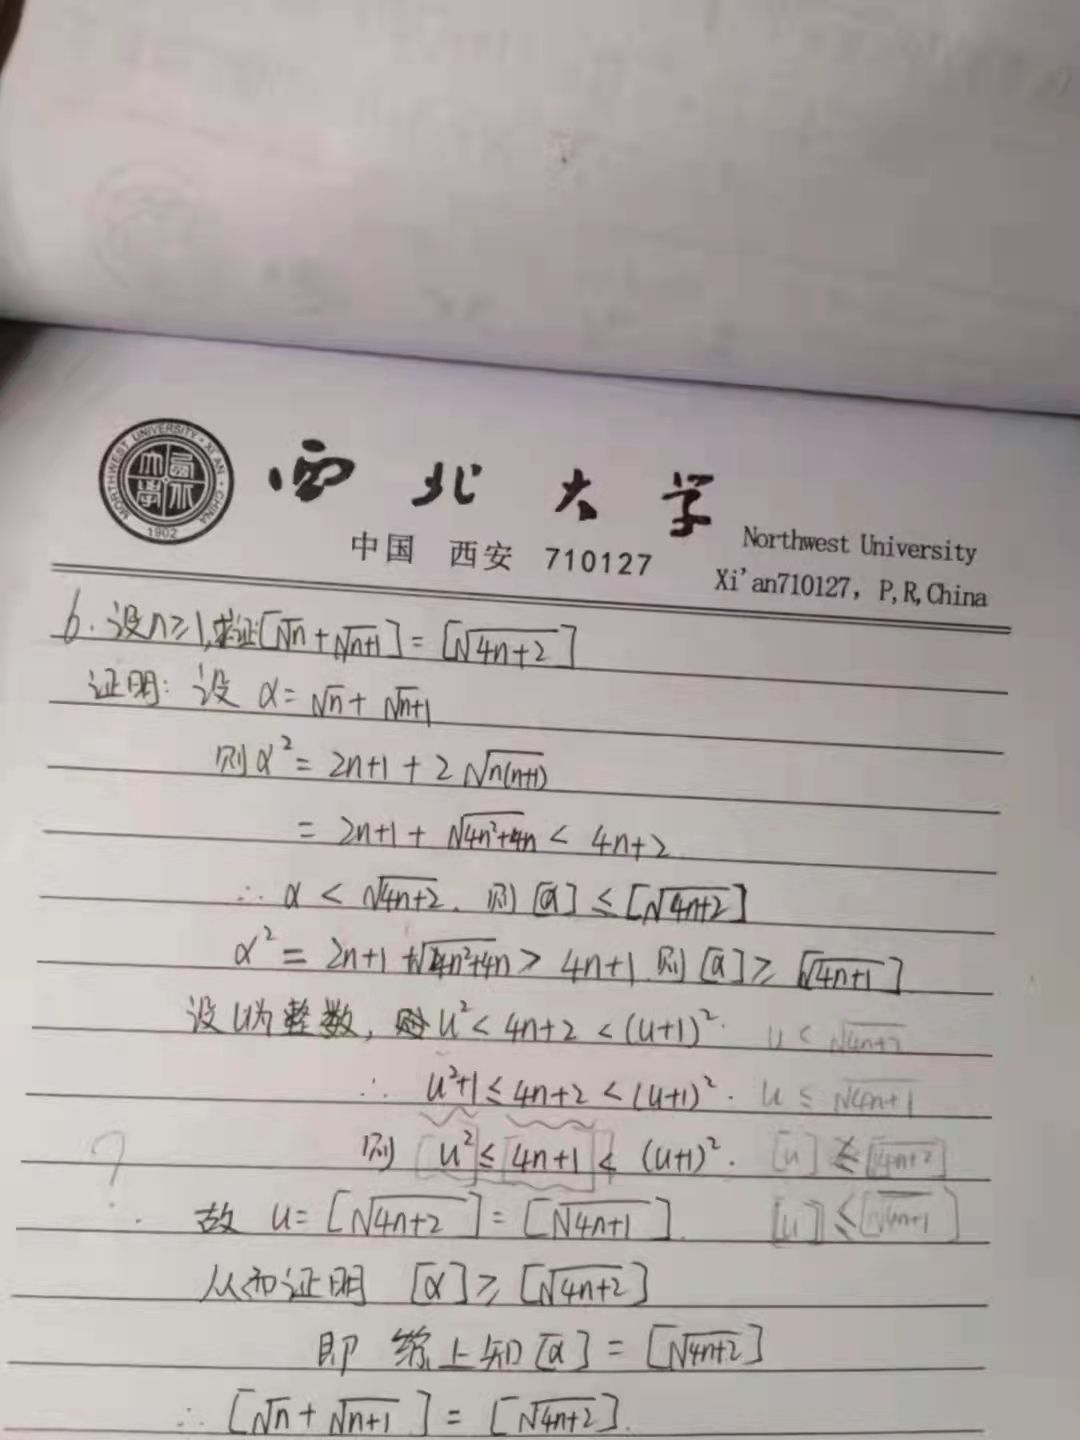 NORTHWEST UNIVERSITY · XI'AN · CHINA
1902
西北大学
中国 西安 710127
Northwest University
Xi'an710127, P,R,China
6.设n≥1,求证[√n+√n+1]=[√4n+2]
证明:设 α=√n+√n+1
则α²=2n+1+2√n(n+1)
=2n+1+√4n²+4n<4n+2
∴α<√4n+2.则[α]≤[√4n+2]
α²=2n+1+√4n²+4n>4n+1.则[α]≥[√4n+1]
设u为整数, u²<4n+2<(u+1)². u<√4n+2
∴ u²+1≤4n+2<(u+1)². u≤√4n+1
则 u²≤4n+1<(u+1)². [u]≤[√4n+2]
? 故 u=[√4n+2]=[√4n+1]. [u]≤[√4n+1]
从而证明 [α]≥[√4n+2]
即 综上知[α]=[√4n+2]
∴[√n+√n+1]=[√4n+2].